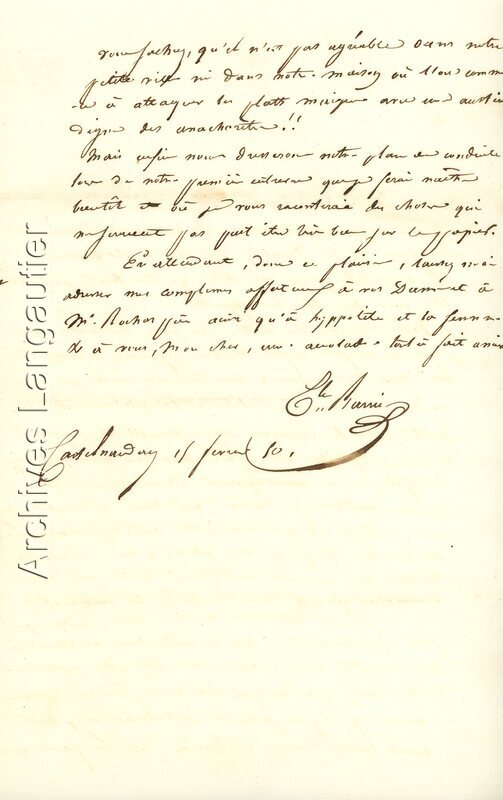 vous sachez, qu'il n'est pas agréable dans notre
petite ville ni dans notre maison où l'on comm
-e à attaquer les plats maigres avec une
digne des anachorètes!!
Mais enfin nous dresserons notre plan de conduite
lors de notre première entrevue que je ferai naître
bientôt et où je vous raconterai des choses qui
ne pas peut être très bien sur le papier.
En attendant, donc ce plaisir, laissez moi
adresser mes complimens affectueux à vos Dames et à
Mr. Rochas père ainsi qu'à hyppolite et sa femme
& à vous, Mon cher, une accolade tout à fait
Barrié
Castelnaudary 15 fevrier 50.
Archives Langautier